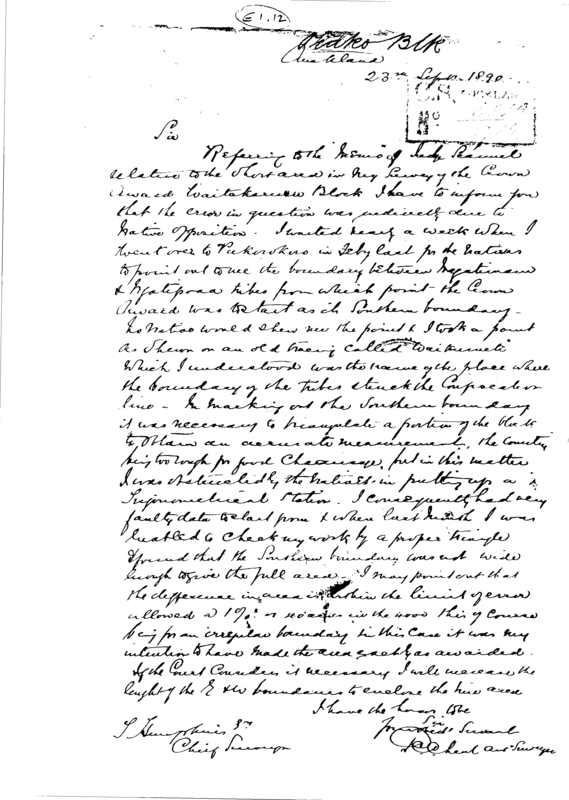 E 1.12
Blk
Auckland
23rd Sept. 1890
Sir
Referring to the Memo of Judge
relative to the short area in my Survey of the Crown
Award Block I have to inform you
that the error in question was indirectly due to
Native opposition. I waited nearly a week when I
went over to Pukorokoro in Feby last for the natives
to point out to me the boundary between
& Ngatipaoa tribes from which point the Crown
Award was to start as its Southern boundary -
No Native would shew me the point & I took a point
as shewn on an old tracing called
which I understood was the name of the place where
the boundary of the tribes struck the Confiscation
line - In marking out the Southern boundary
it was necessary to triangulate a portion of the block
to obtain an accurate measurement, the country
being too rough for good Chainage, but in this matter
I was obstructed by the Natives in putting up a
Trigonometrical Station. I consequently had very
faulty data to start from & when last I was
enabled to check my work by a proper triangle
& found that the Southern boundary was not wide
enough to give the full area - I may point out that
the difference in area is within the limit of error
allowed 1% in the this of course
being for an irregular boundary in this case it was my
intention to have made the area exactly as awarded.
If the Court Considers it necessary I will increase the
lenght of the E & W boundaries to enclose the area
I have the honor to be
Sir
Your Servant
S Humphries Esq
Chief Surveyor
Surveyor